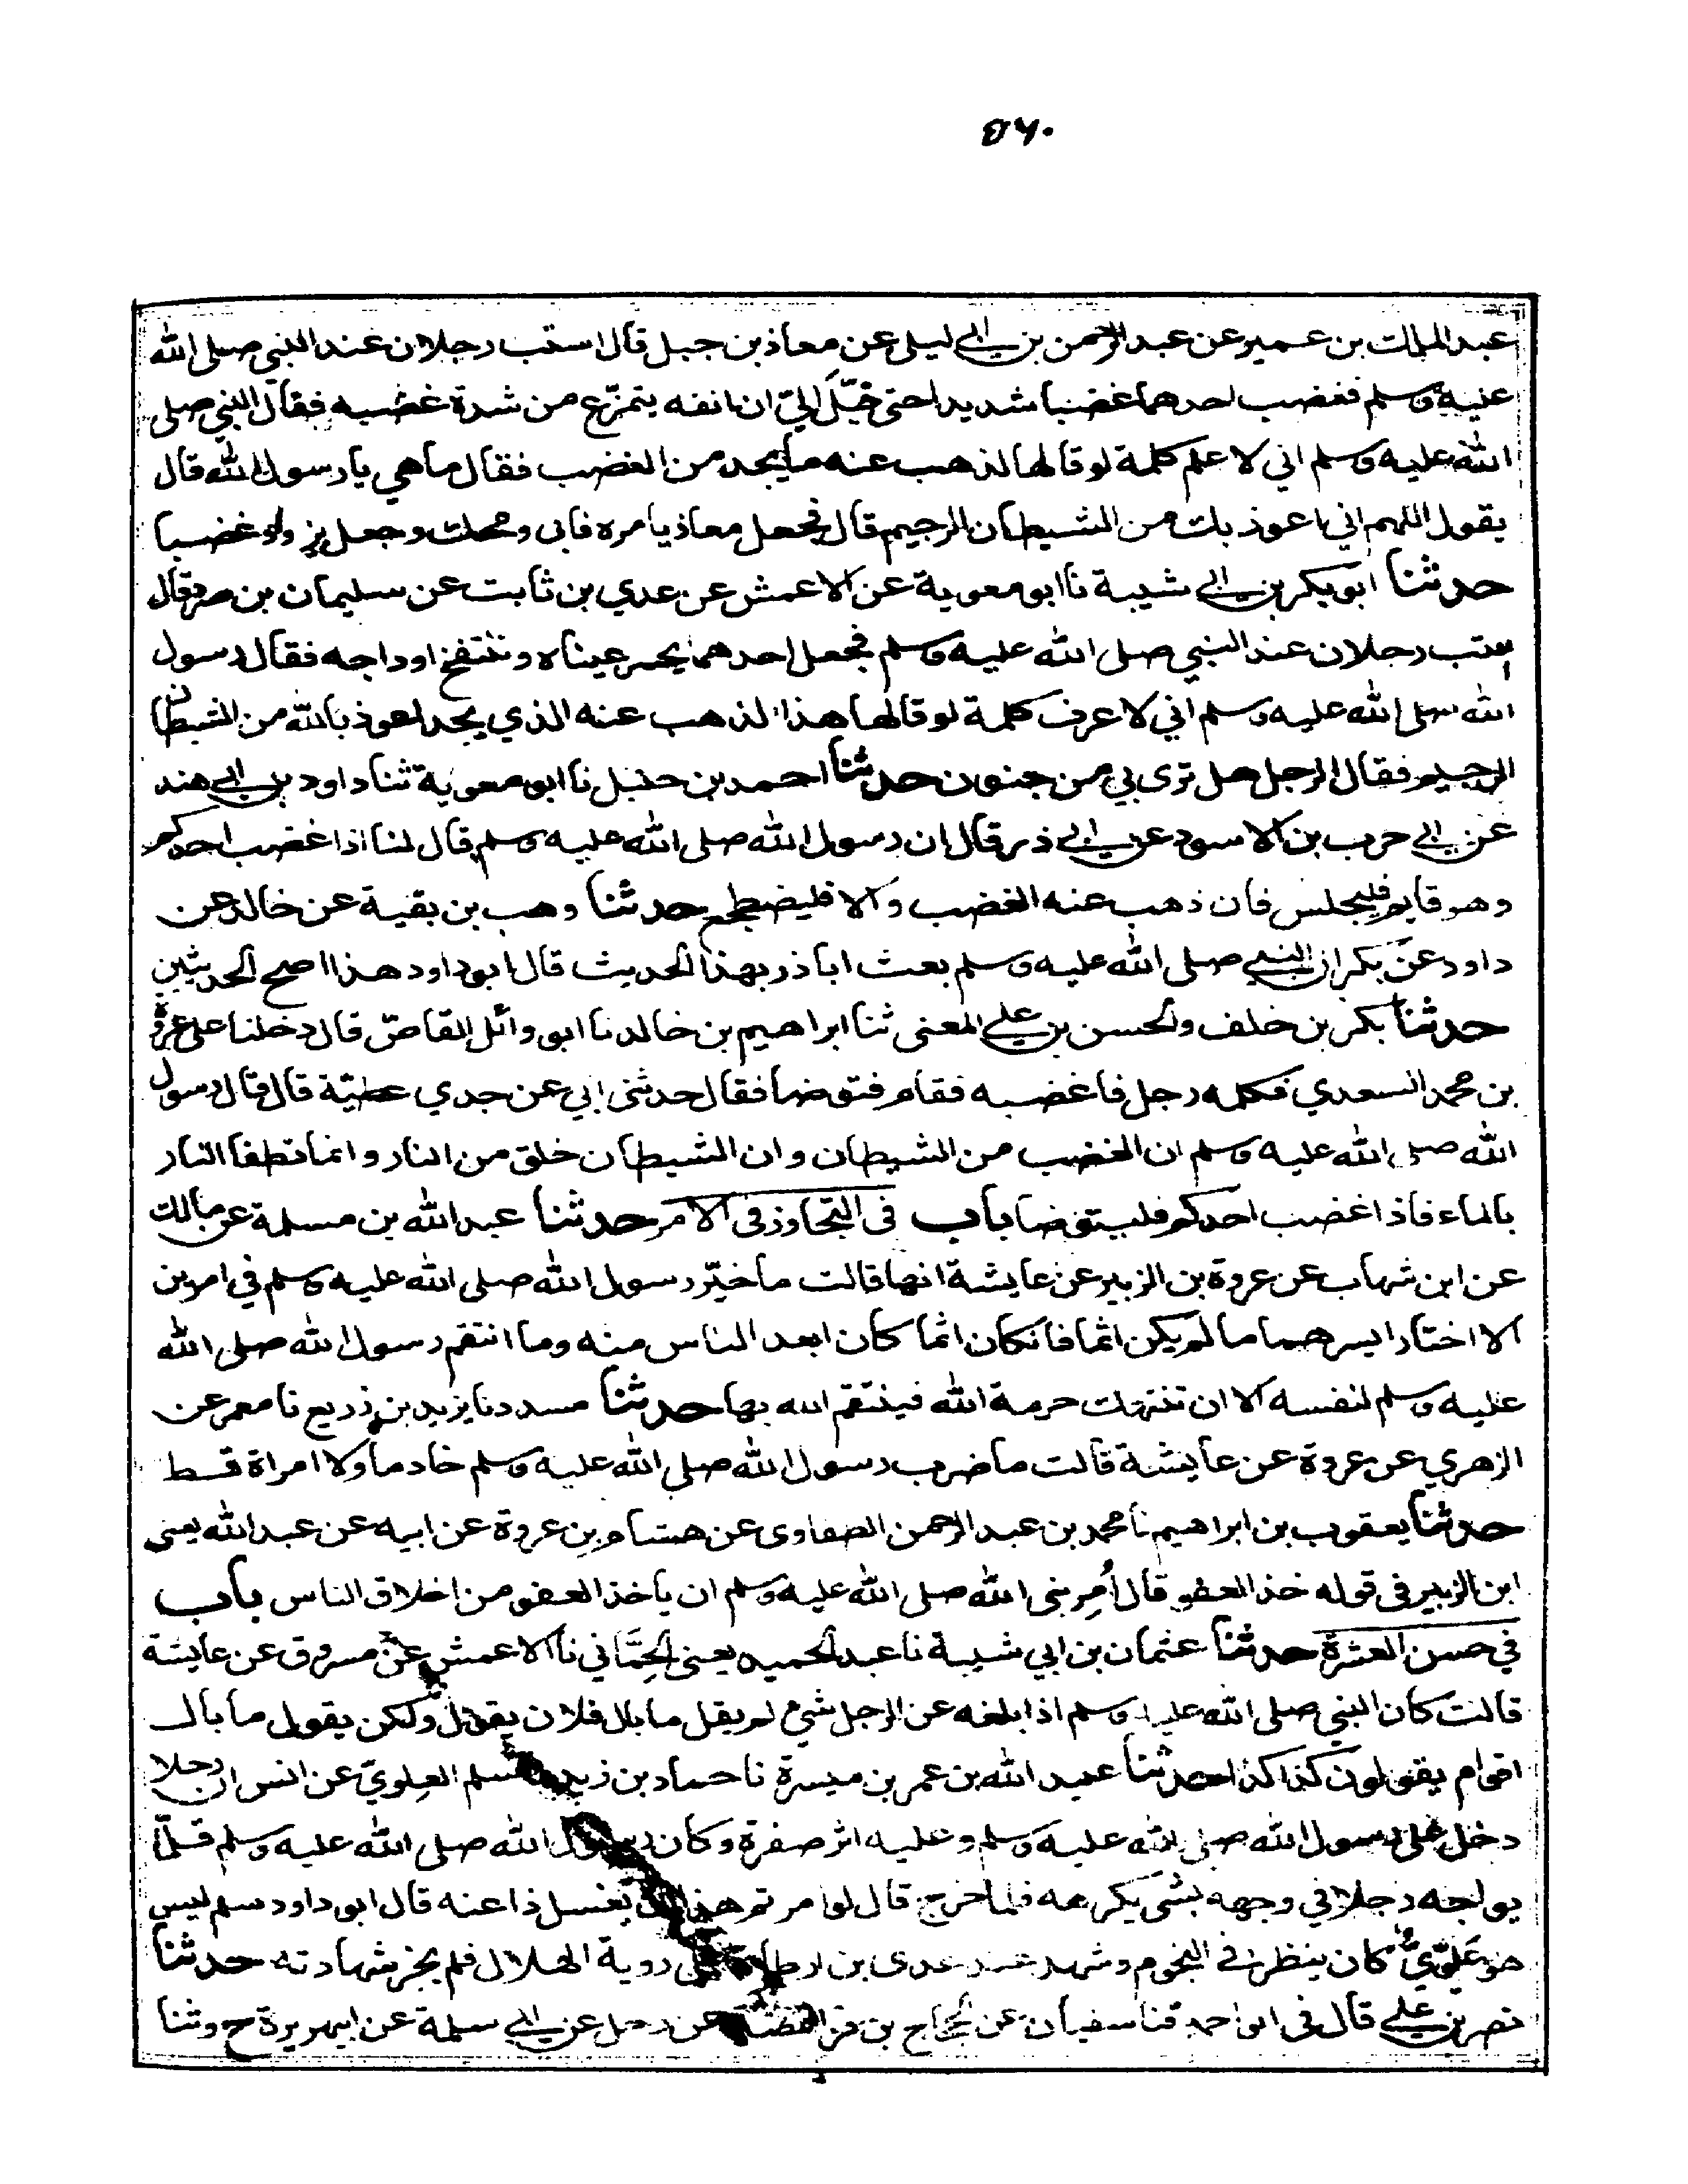 ٥٦٠
عبد الملك بن عمير عن عبد الرحمن بن ابي ليلى عن معاذ بن جبل قال استب رجلان عند النبي صلى الله
عليه وسلم فغضب احدهما غضبا شديدا حتى خُيّلَ اليّ ان انفه يتمزّع من شدة غضبه فقال النبي صلى
الله عليه وسلم اني لاعلم كلمة لو قالها لذهب عنه ما يجد من الغضب فقال ما هي يا رسول الله قال
يقول اللهم اني اعوذ بك من الشيطان الرجيم قال فجعل معاذ يامره فابى ومحك وجعل يزداد غضبا
حدثنا ابو بكر بن ابي شيبة نا ابو معوية عن الاعمش عن عدي بن ثابت عن سليمان بن صرد قال
استب رجلان عند النبي صلى الله عليه وسلم فجعل احدهما يحمر عيناه وتنتفخ اوداجه فقال رسول
الله صلى الله عليه وسلم اني لاعرف كلمة لو قالها هذا لذهب عنه الذي يجد اعوذ بالله من الشيطان
الرجيم فقال الرجل هل ترى بي من جنون حدثنا احمد بن حنبل نا ابو معوية ثنا داود بن ابي هند
عن ابي حرب بن الاسود عن ابي ذر قال ان رسول الله صلى الله عليه وسلم قال لنا اذا غضب احدكم
وهو قايم فليجلس فان ذهب عنه الغضب والا فليضطجع حدثنا وهب بن بقية عن خالد عن
داود عن بكر ان النبي صلى الله عليه وسلم بعث ابا ذر بهذا الحديث قال ابو داود هذا اصح الحديثين
حدثنا بكر بن خلف والحسن بن علي المعنى ثنا ابراهيم بن خالد نا ابو وائل القاصّ قال دخلنا على عروة
بن محمد السعدي فكلمه رجل فاغضبه فقام فتوضا فقال حدثني ابي عن جدي عطيّة قال قال رسول
الله صلى الله عليه وسلم ان الغضب من الشيطان وان الشيطان خلق من النار وانما تطفا النار
بالماء فاذا غضب احدكم فليتوضا باب في التجاوز في الامر حدثنا عبد الله بن مسلمة عن مالك
عن ابن شهاب عن عروة بن الزبير عن عايشة انها قالت ما خيّر رسول الله صلى الله عليه وسلم في امرين
الا اختار ايسرهما ما لم يكن اثما فانكان اثما كان ابعد الناس منه وما انتقم رسول الله صلى الله
عليه وسلم لنفسه الا ان تنتهك حرمة الله فينتقم الله بها حدثنا مسدد نا يزيد بن زريع نا معمر عن
الزهري عن عروة عن عايشة قالت ما ضرب رسول الله صلى الله عليه وسلم خادما ولا امراة قط
حدثنا يعقوب بن ابراهيم نا محمد بن عبد الرحمن الطفاوى عن هشام بن عروة عن ابيه عن عبد الله يعنى
ابن الزبير في قوله خذ العفو قال اُمِر نبى الله صلى الله عليه وسلم ان ياخذ العفو من اخلاق الناس باب
في حسن العشرة حدثنا عثمان بن ابي شيبة نا عبد الحميد يعنى الحِمَّاني نا الاعمش عن مسروق عن عايشة
قالت كان النبي صلى الله عليه وسلم اذا بلغه عن الرجل شئ لم يقل ما بال فلان يقول ولكن يقول ما بال
اقوام يقولون كذا كذا حدثنا عبيد الله بن عمر بن ميسرة نا حماد بن زيد سلم العلويّ عن انس ان رجلا
دخل على رسول الله صلى الله عليه وسلم وعليه اثر صفرة وكان رسول الله صلى الله عليه وسلم قلمّا
يواجه رجلا في وجهه بشى يكرهه فلما خرج قال لو امرتم هذا ان يغسل ذا عنه قال ابو داود سلم ليس
هو عَلَوِيٌّ كان ينظر في النجوم وشهد عند عدى بن ارطاة على روية الهلال فلم يجز شهادته حدثنا
نصر بن علي قال فى ابو احمد قنا سفيان عن الحجاج بن فرافصة عن رجل عن ابي سلمة عن ابيهريرة ح وثنا